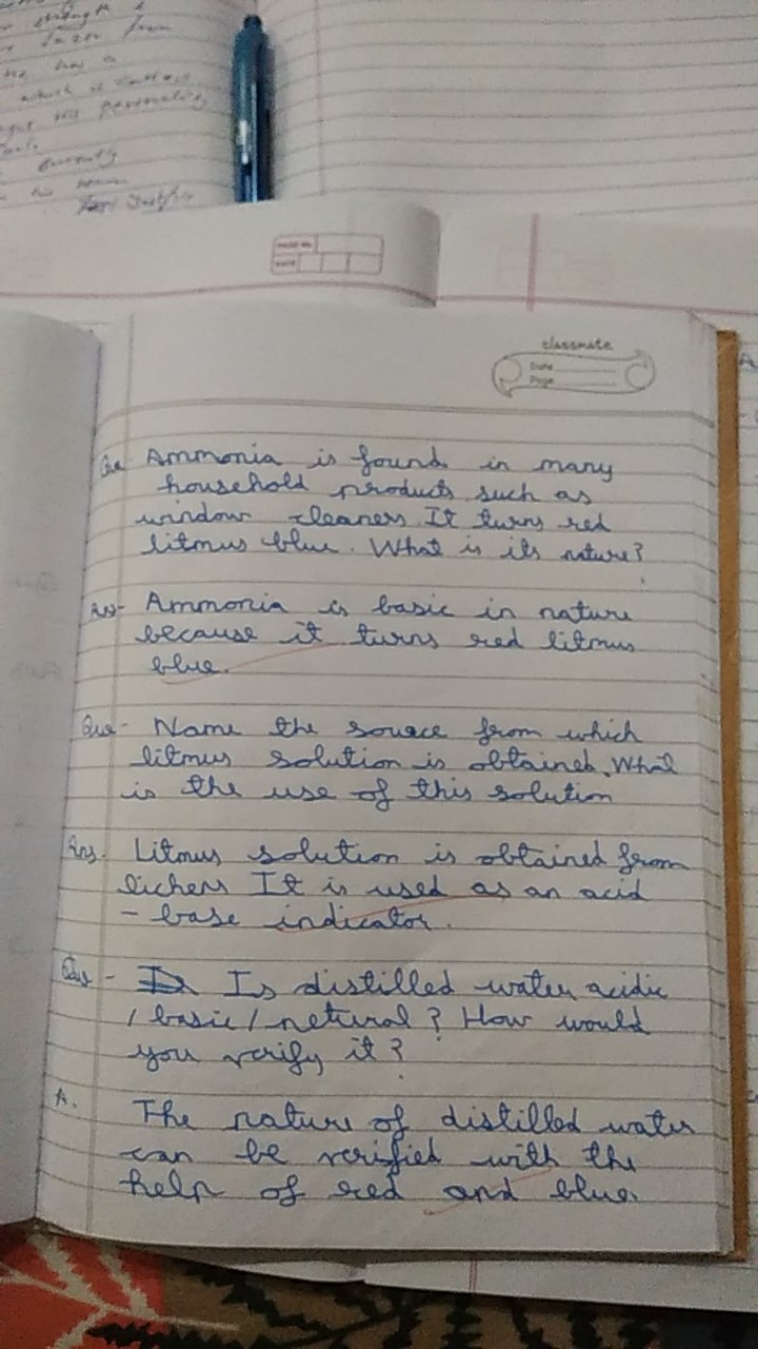 strength &
from
which is
his personality
currently
PAGE NO.
DATE
classmate
Date
Page
Que. Ammonia is found in many
household products such as
window cleaners. It turns red
litmus blue. What is its nature?
Ans- Ammonia is basic in nature
because it turns red litmus
blue.
Que- Name the source from which
litmus solution is obtained. What
is the use of this solution
Ans. Litmus solution is obtained from
lichens It is used as an acid
- base indicator.
Que- Is distilled water acidic
/ basic / netural ? How would
you verify it ?
A. The nature of distilled water
can be verified with the
help of red and blue.